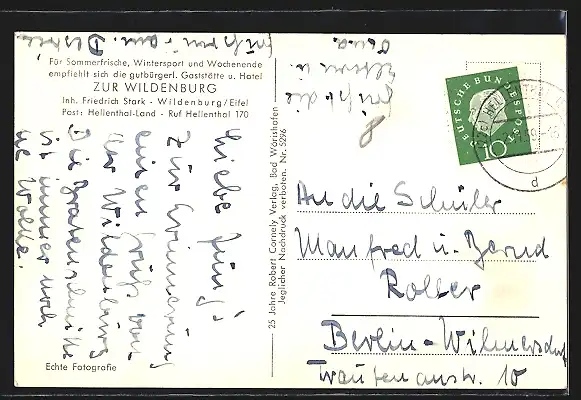 Für Sommerfrische, Wintersport und Wochenende
empfiehlt sich die gutbürgerl. Gaststätte u. Hotel
ZUR WILDENBURG
Inh. Friedrich Stark - Wildenburg/Eifel
Post: Hellenthal-Land - Ruf Hellenthal 170
Liebe Jungs!
Zur Erinnerung
einen Gruß von
der Wildenburg
Die
ist immer noch
die Wolke.
Echte Fotografie
25 Jahre Robert Cornely Verlag, Bad Wörishofen
Jeglicher Nachdruck verboten. Nr. 5296
DEUTSCHE BUNDESPOST
10
d
An die Schüler
Manfred u. Bernd
Roller
Berlin-Wilmersdorf
Trautenaustr. 10